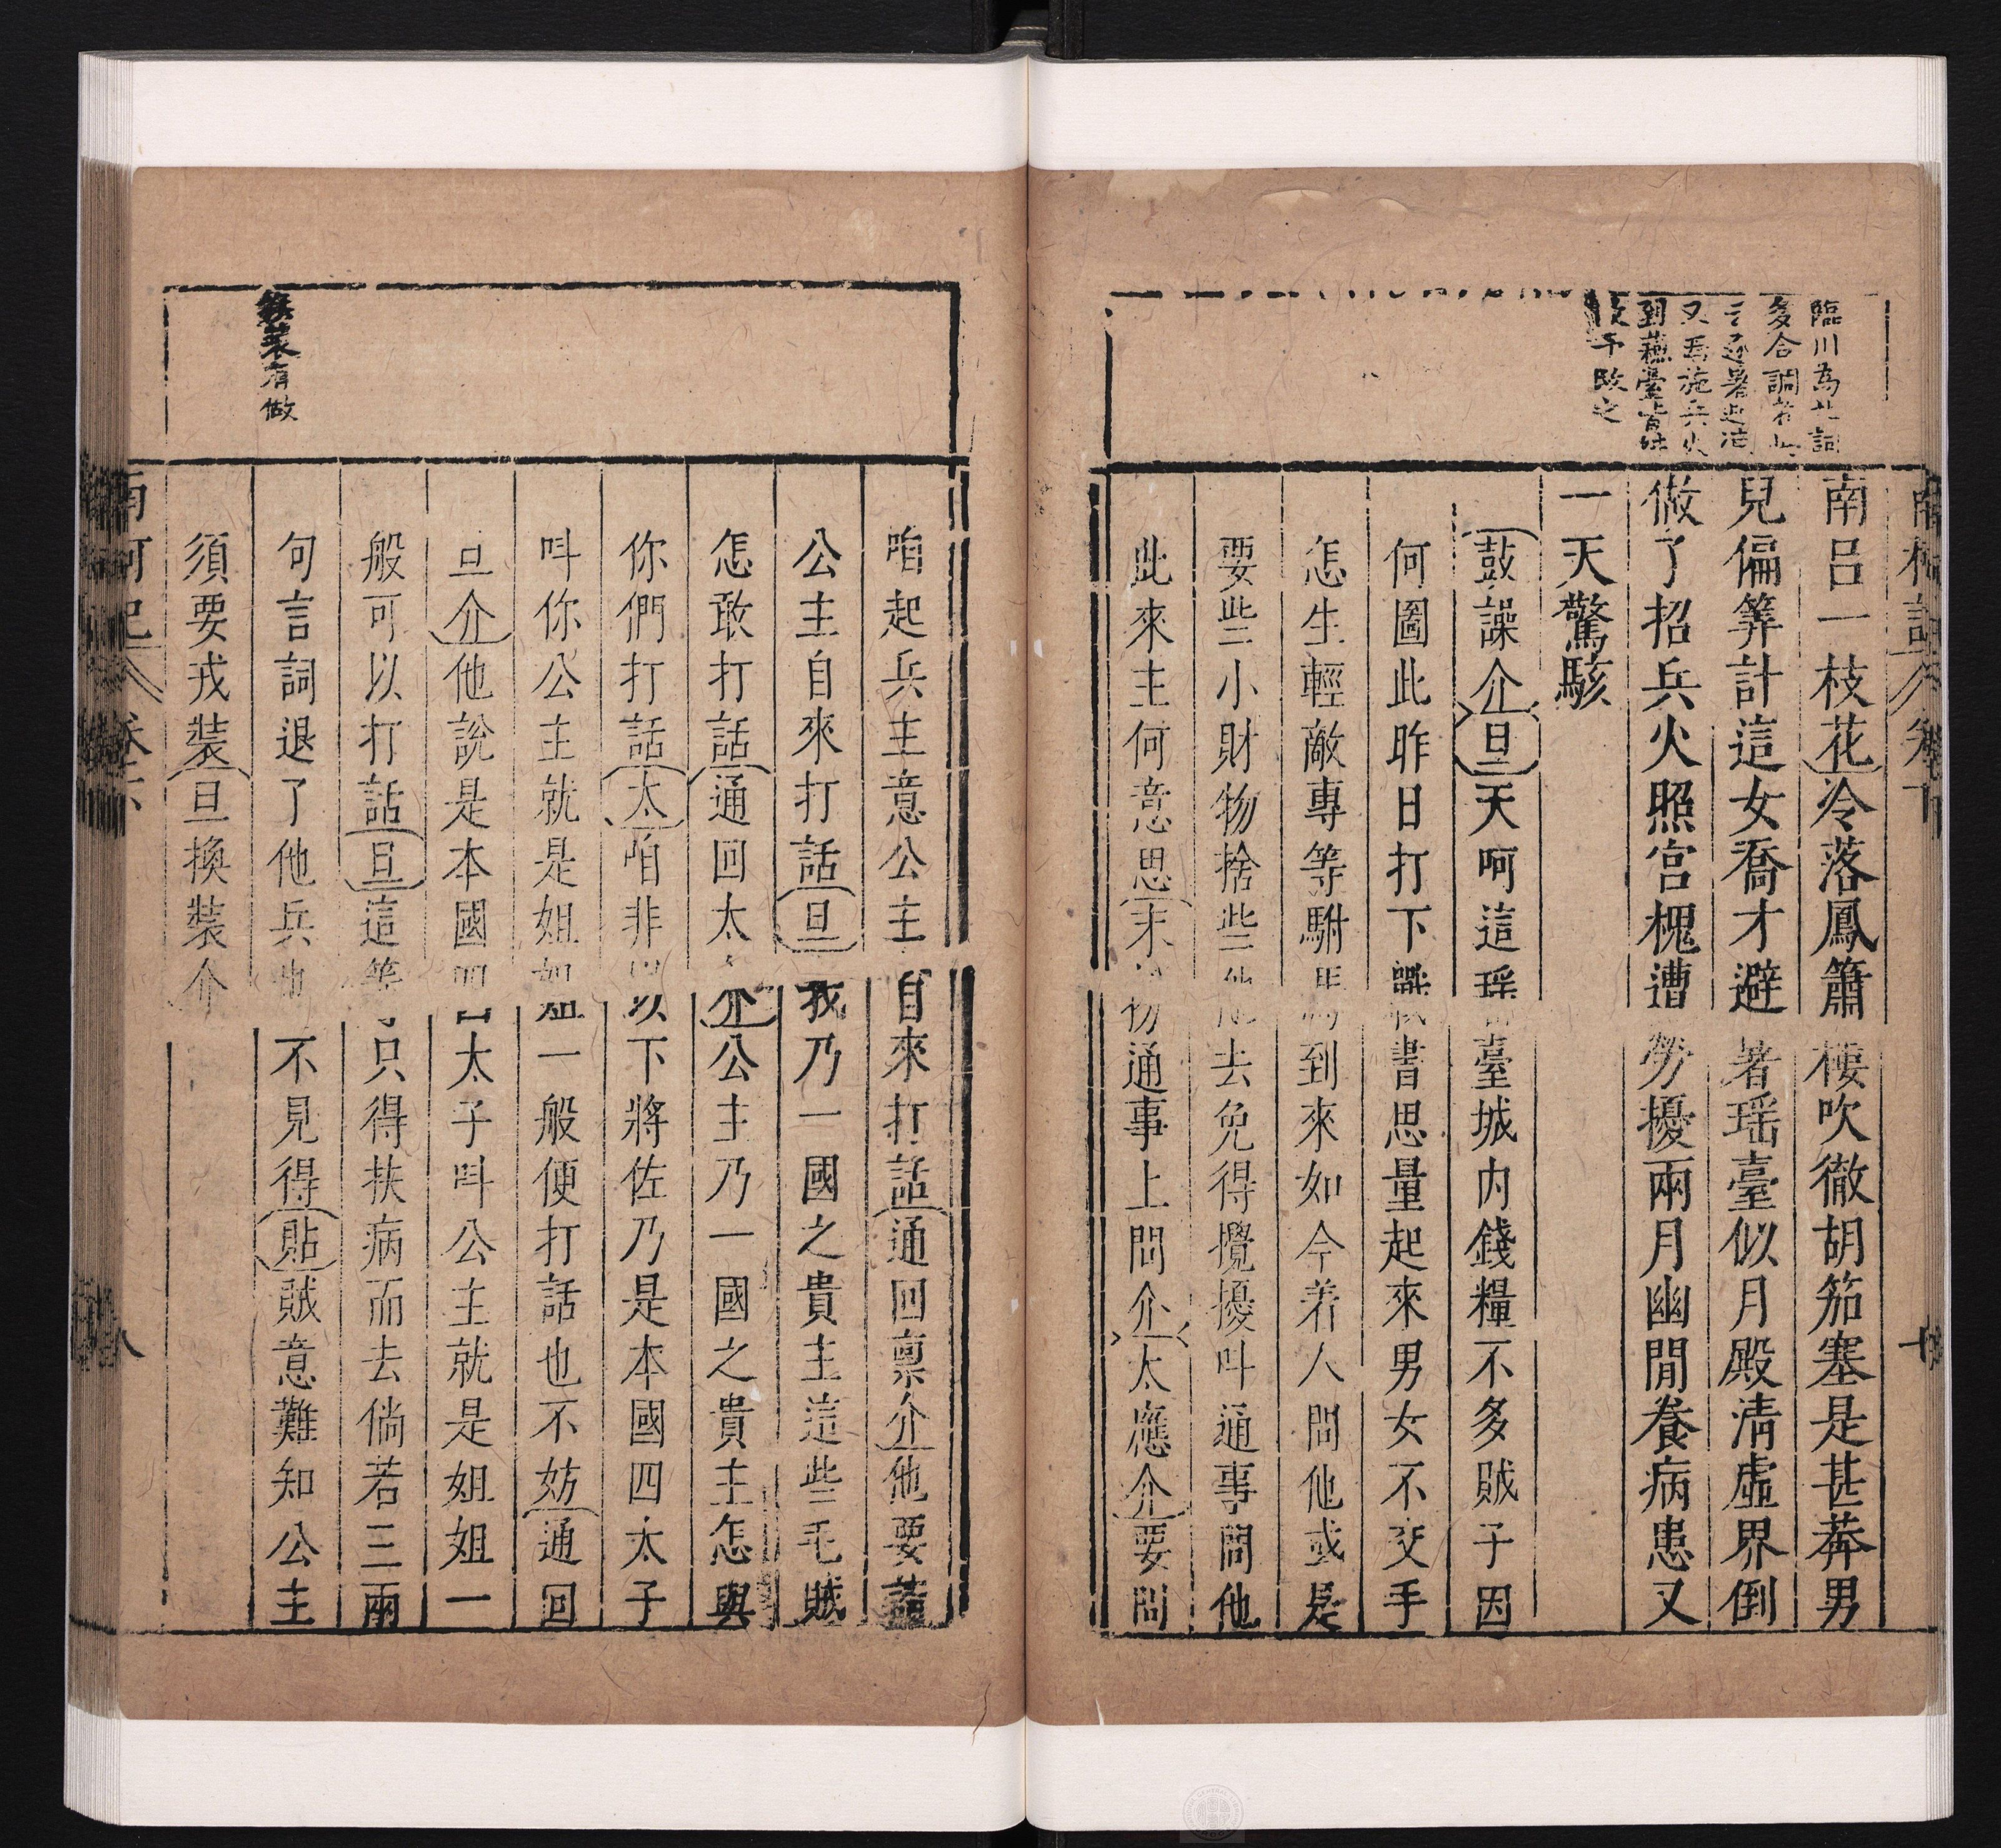 臨川為北詞
多合調者
到蘇臺皆
故予改之
南柯記 卷下
南呂一枝花冷落鳳簫樓吹徹胡笳塞是甚莽男
兒偏筭計這女喬才避著瑶臺似月殿清虛界倒
做了招兵火照宮槐遭勞擾兩月幽閒養病患又
一天驚駭
鼓譟介旦天呵這瑶臺城内錢糧不多賊子因
何圖此昨日打下戰書思量起來男女不交手
怎生輕敵專等駙馬到來如今着人問他或是
要些小財物捨些他去免得攪擾叫通事問他
此來主何意思末扮通事上問介太應介要問
咱起兵主意公主自來打話通回稟介他要請
公主自來打話旦我乃一國之貴主這些毛賊
怎敢打話通回太介公主乃一國之貴主怎與
你們打話太咱非以下將佐乃是本國四太子
呌你公主就是姐姐一般便打話也不妨通回
旦介他說是本國四太子呌公主就是姐姐一
般可以打話旦這等只得扶病而去倘若三兩
句言詞退了他兵也不見得貼賊意難知公主
須要戎裝旦換裝介
換裝有做
南柯記 卷下 八